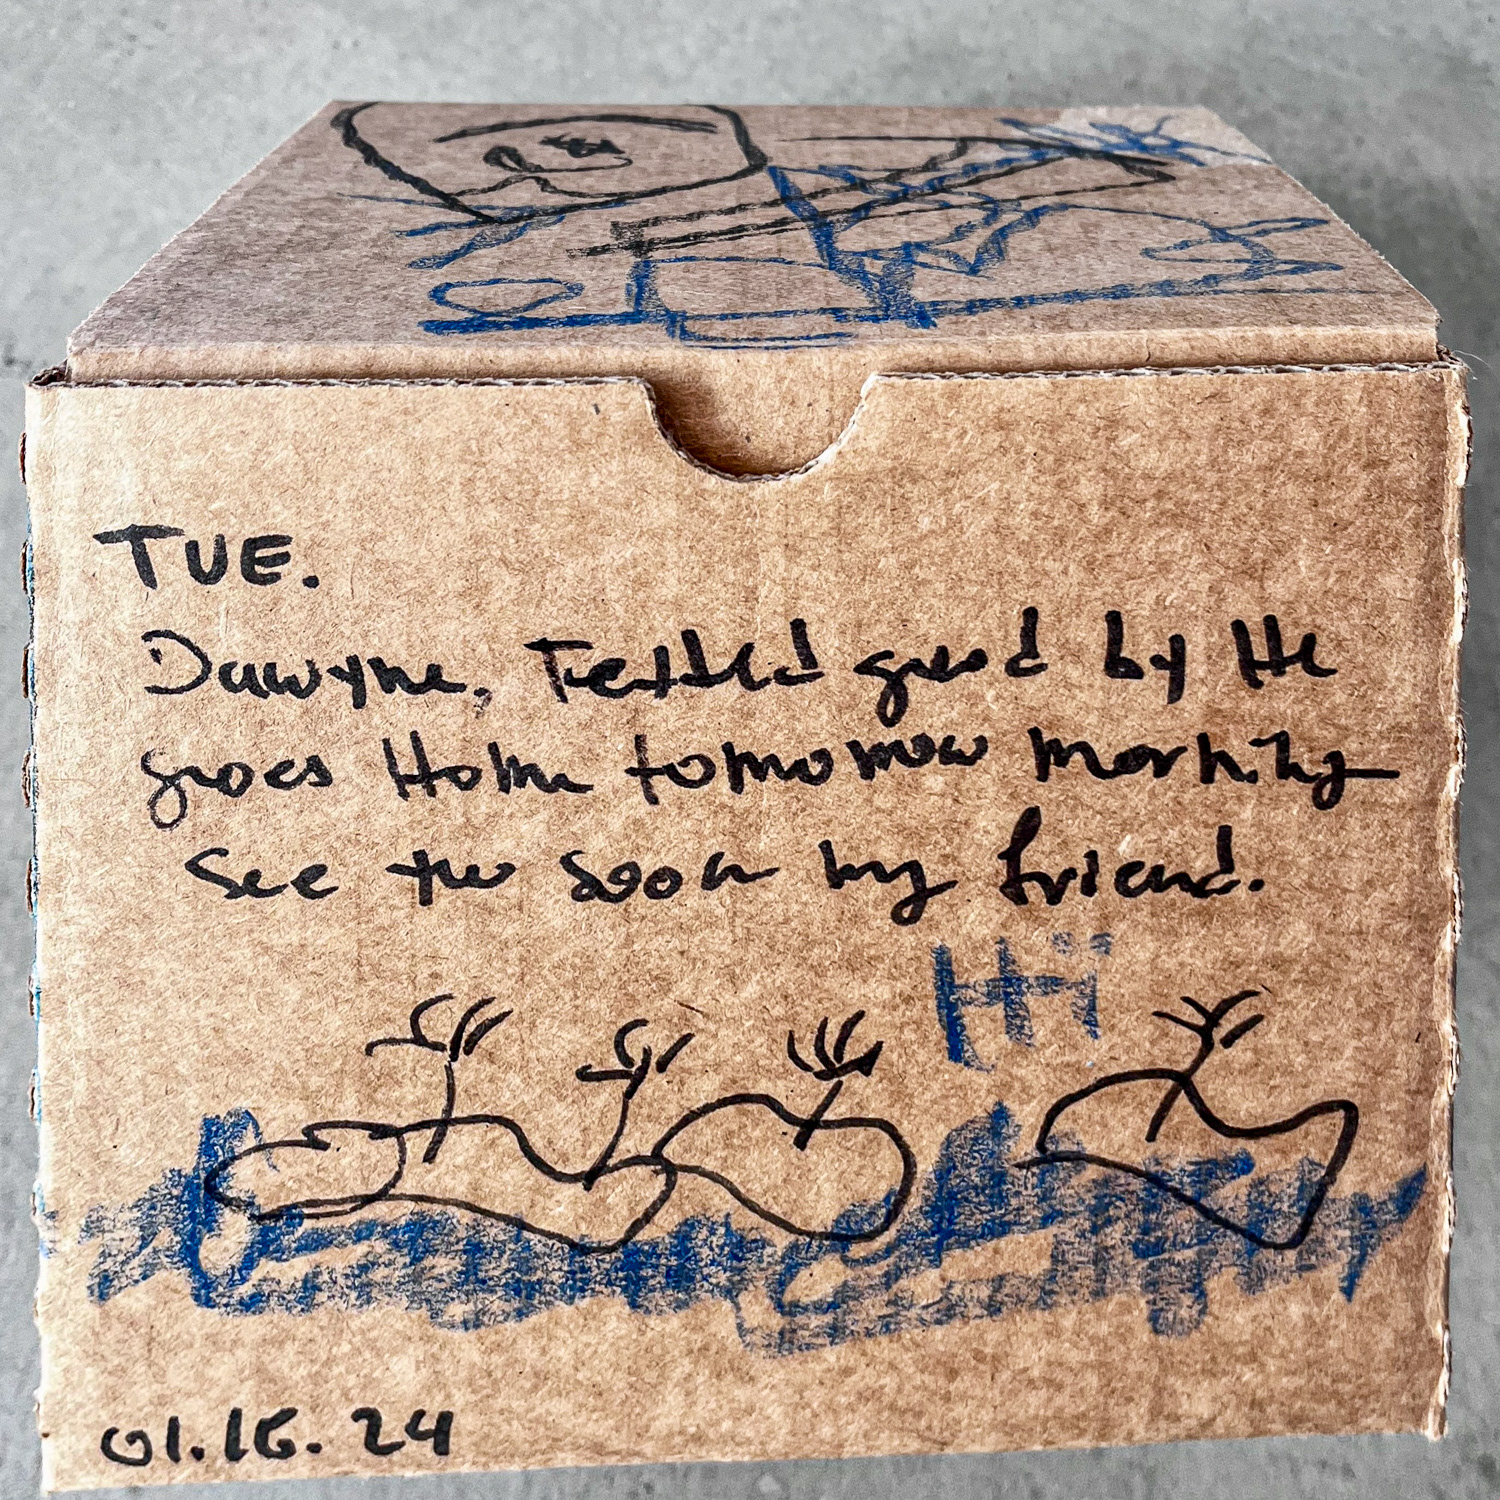 TUE.
Dawyne, Texted good by He
goes Home tomorrow morning
See you soon my friend.
Hi
01.16.24